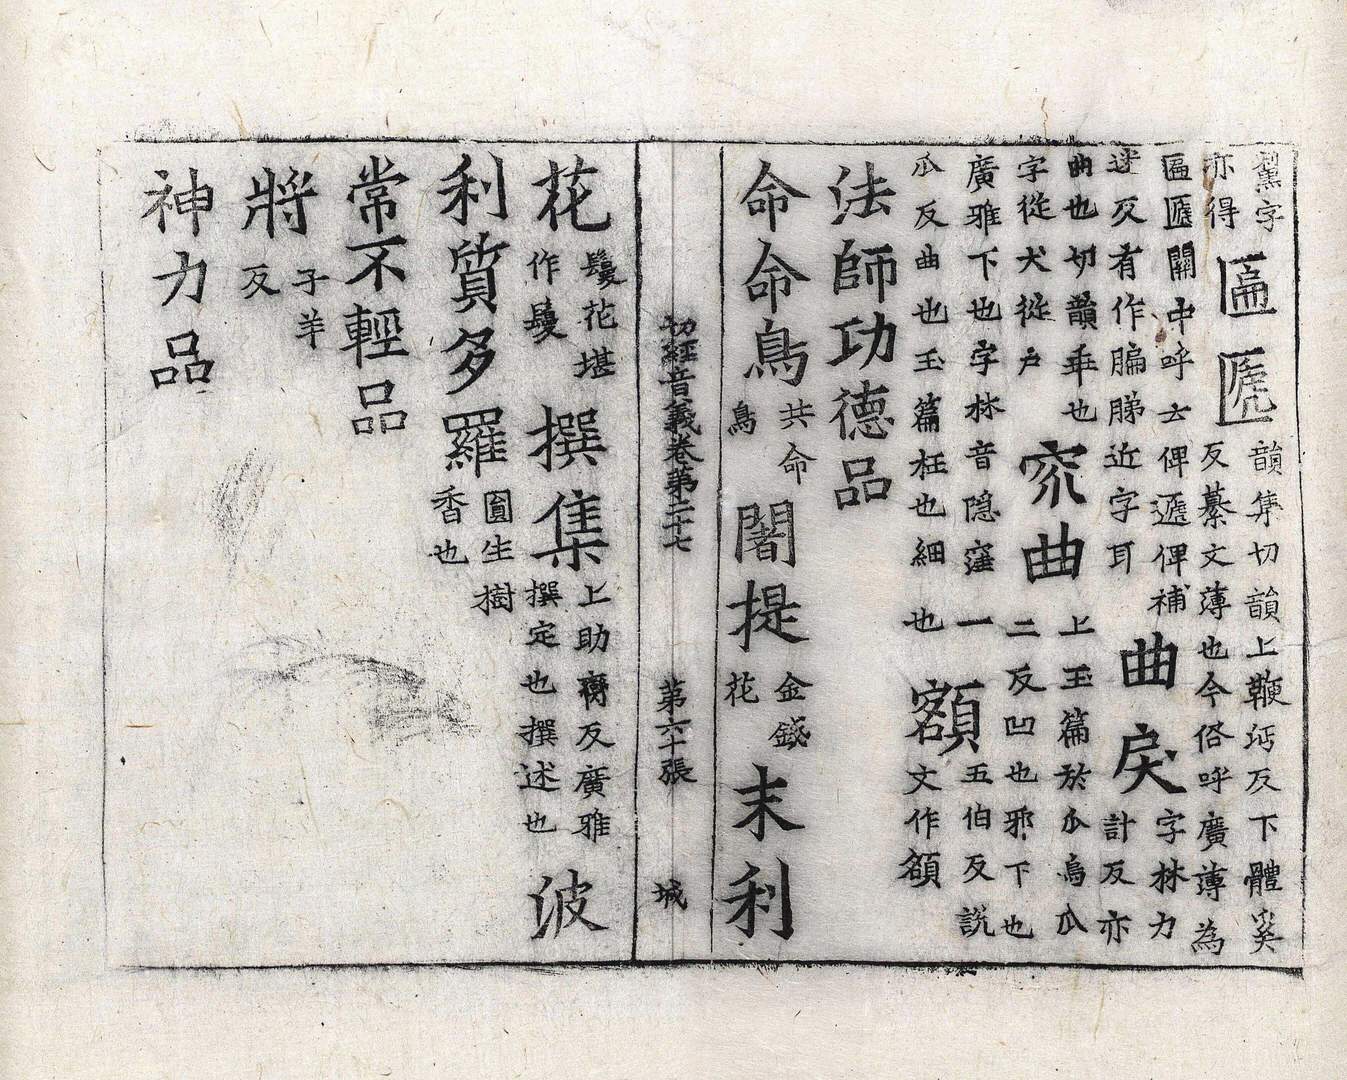 黧字亦得匾㔸韻集切韻上鞭沔反下體奚反纂文薄也今俗呼廣薄為
匾㔸關中呼云俾遞俾補迷反有作䐔䏲近字耳曲戾字林力計反亦
曲也切韻乖也字從犬從户窊曲上玉篇於瓜烏瓜二反凹也邪下也
廣雅下也字林音隱窪一瓜反曲也玉篇枉也細也額五伯反說文作頟
法師功德品
命命鳥共命鳥闍提金錢花末利
切經音義卷第二十七 第六十張 城
花鬘花堪作鬘撰集上助臠反廣雅撰定也撰述也波
利質多羅圓生樹香也
常不輕品
將子羊反
神力品